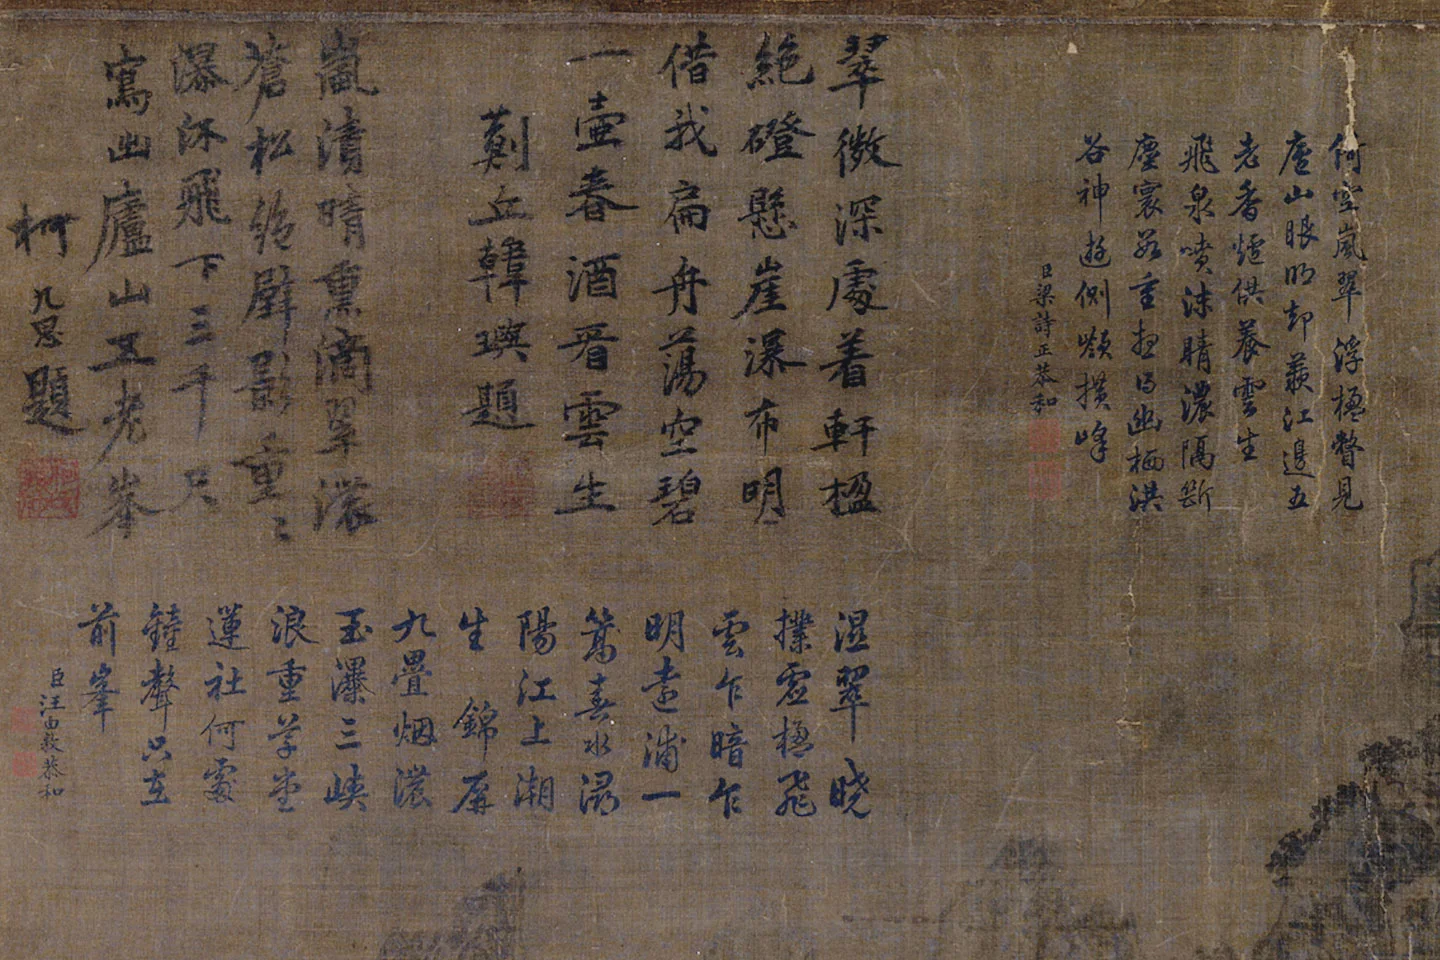 倚空嵐翠浮楹瞥見
廬山眼明却羨江邊五
老香爐供養雲生
飛泉噴沫晴濃隔斷
塵寰若重想得幽栖洪
谷神遊側嶺橫峰
臣梁詩正恭和
翠微深處着軒楹
絕磴懸崖瀑布明
借我扁舟蕩空碧
一壺春酒看雲生
薊丘韓璵題
嵐漬晴熏滴翠濃
蒼松絕壁影重〻
瀑流飛下三千尺
寫出廬山五老峯
柯九思題
湿翠曉
撲虛楹飛
雲乍暗乍
明遠浦一
篙春水潯
陽江上潮
生錦屏
九疊烟濃
玉瀑三峽
浪重草堂
蓮社何處
鐘聲只在
前峯
臣汪由敦恭和